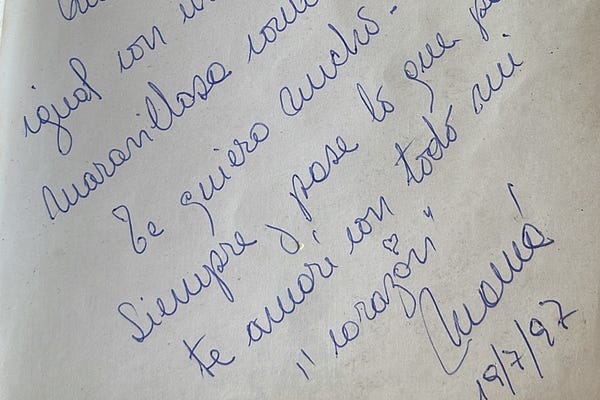 igual con
maravillosa como
Te quiero mucho.
Siempre y pase lo que
te amaré con todo mi
"corazón"
Mamá
19/7/97